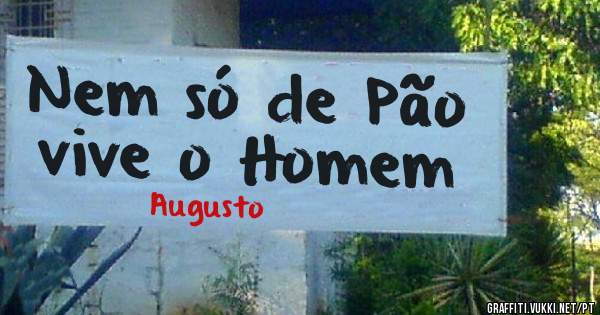 Nem só de Pão
vive o Homem
Augusto
GRAFFITI.VUKKI.NET/PT